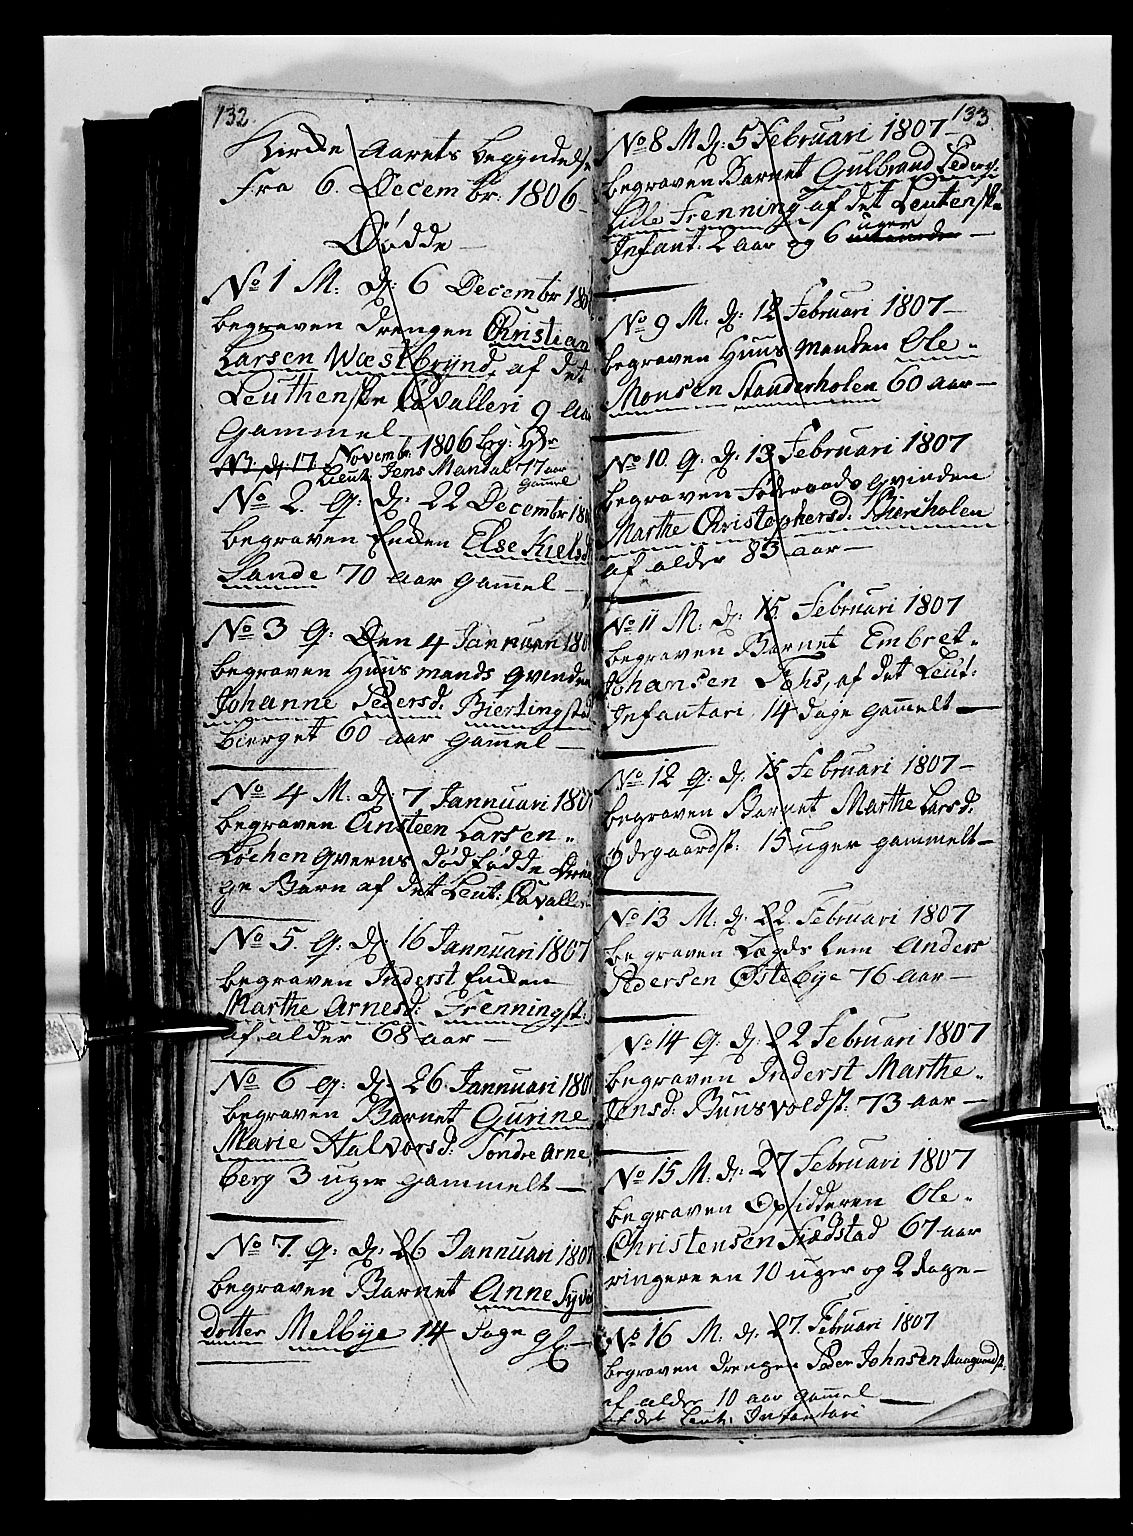 132.
Kirkke Aarets begyndelse
Fra 6. Decembr: 1806 –
Dødde –
No 1 M. d: 6 Decembr 180
begraven Drengen Christian
Larsen Wæstbrynd, af det
Leuthenske Cavalleri 9 Aar
Gammel
N3. d: 17 Novemb: 1806 beg: Hr
Lieut: Jens Mandal 77 aar
gammel
No 2. Q: d: 22 Decembr 180
begraven Enken Else Kields
Sande 70 aar gammel –
No 3 Q: Den 4 Jannuari 180
begraven Huusmands Qvinden
Johanne Pedersd: Biertingstad
bierget 60 aar gammel –
No 4 M. d: 7 Jannuari 180
begraven Einsteen Larsen
Løchen qverns dødfødde Dren
ge Barn af det Leut: Cavalle
No 5. Q: d: 16 Jannuari 1807
begraven Inderst Enken
Marthe Arnesd: Frenningst:
af alder 68 aar –
No 6 Q: d: 26 Jannuari 180
begraven Barnet Gurine
Marie Halvorsd: Søndre Arne
berg 3 uger gammelt –
No 7. Q: d: 26 Jannuari 1807
begraven Barnet Anne Syve
dotter Melbye 14 dage gl: –
133.
No 8 M d: 5 Februari 1807 –
begraven Barnet Gulbrand Peders:
Lille Frenning af det Leutenske
Infant: 2 Aar og 6 uger –
No 9 M. d: 12 Februari 1807 –
begraven Huus Manden Ole
Monsen Standerholen 60 aar –
No 10. Q. d: 13 Februari 1807
begraven Føderaads Qvinden
Marthe Christophersd: Biereholen
af alder 83 aar –
No 11 M. d: 15 Februari 1807
begraven Barnet Embret
Johansen Fohs, af det Leut:
Infantari 14 dage gammelt –
No 12 Q: d: 15 Februari 1807 –
begraven Barnet Marthe Larsd:
Ødegaardst: 15 uger gammelt –
No 13 M. d: 22 Februari 1807
begraven Lægds lem Anders
Pedersen Østebye 76 aar –
No 14 Q: d: 22 Februari 1807
begraven Inderst Marthe
Jensd: Buusvoldst: 73 aar –
No 15 M. d: 27 Februari 1807
begraven Opsidderen Ole
Christensen Fladstad 67 aar
ringere en 10 uger og 2 dage –
No 16 M. d: 27. Februari 1807
begraven Drengen Peder Johnsen
af alder 10 aar gammel –
af det Leut: Infantari